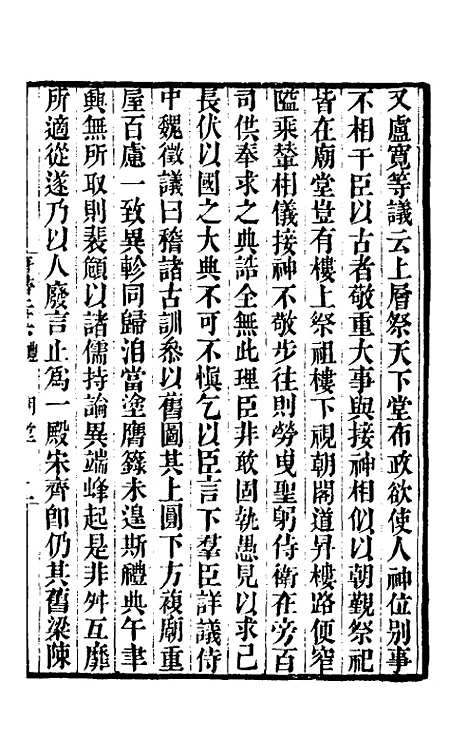 又盧寬等議云上層祭天下堂布政欲使人神位別事
不相干臣以古者敬重大事與接神相似以朝覲祭祀
皆在廟堂豈有樓上祭祖樓下視朝閣道昇樓路便窄
隘乘輦相儀接神不敬步往則勞曳聖躬侍衛在旁百
司供奉求之典誥全無此理臣非敢固執愚見以求己
長伏以國之大典不可不愼乞以臣言下羣臣詳議侍
中魏徵議曰稽諸古訓叅以舊圖其上圓下方複廟重
屋百慮一致異軫同歸洎當塗膺籙未遑斯禮典午聿
興無所取則裴頠以諸儒持論異端蜂起是非舛互靡
所適從遂乃以人廢言止爲一殿宋齊卽仍其舊梁陳